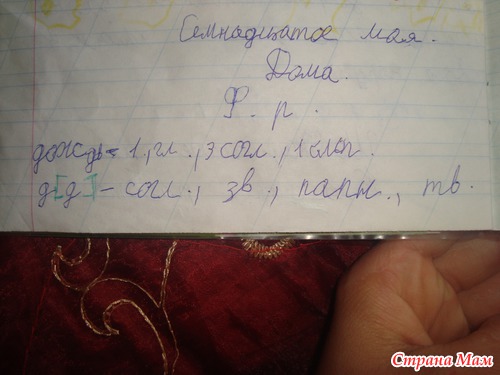 Семнадцатое мая.
Дома.
Ф. р.
дождь - 1 гл., 3 согл., 1 слог.
д [д] - согл., зв., парн., тв.
Страна Мам